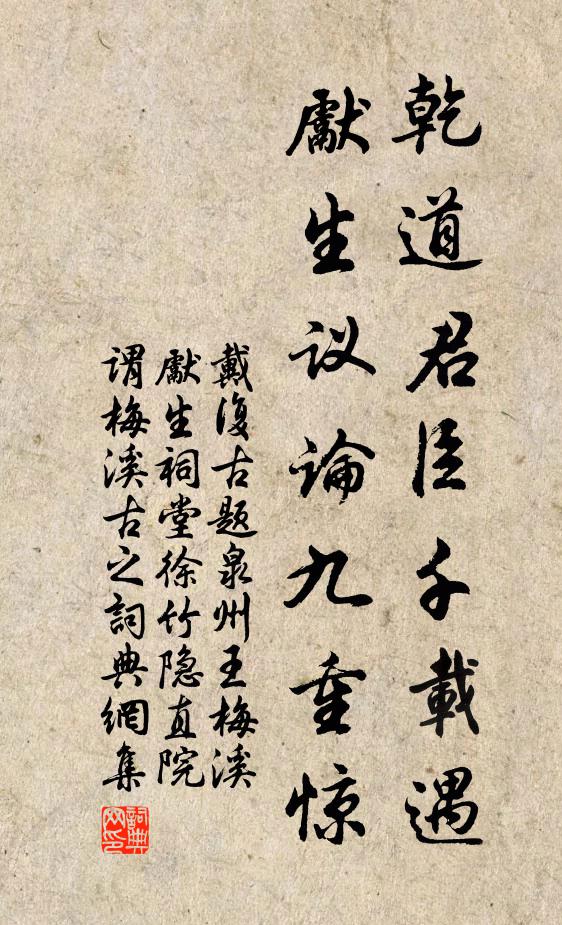 乾道君臣千載遇
獻生议論九重惊
戴復古題泉州王梅溪
獻生祠堂徐竹隐直院
谓梅溪古之詞典網集
詞典
网印